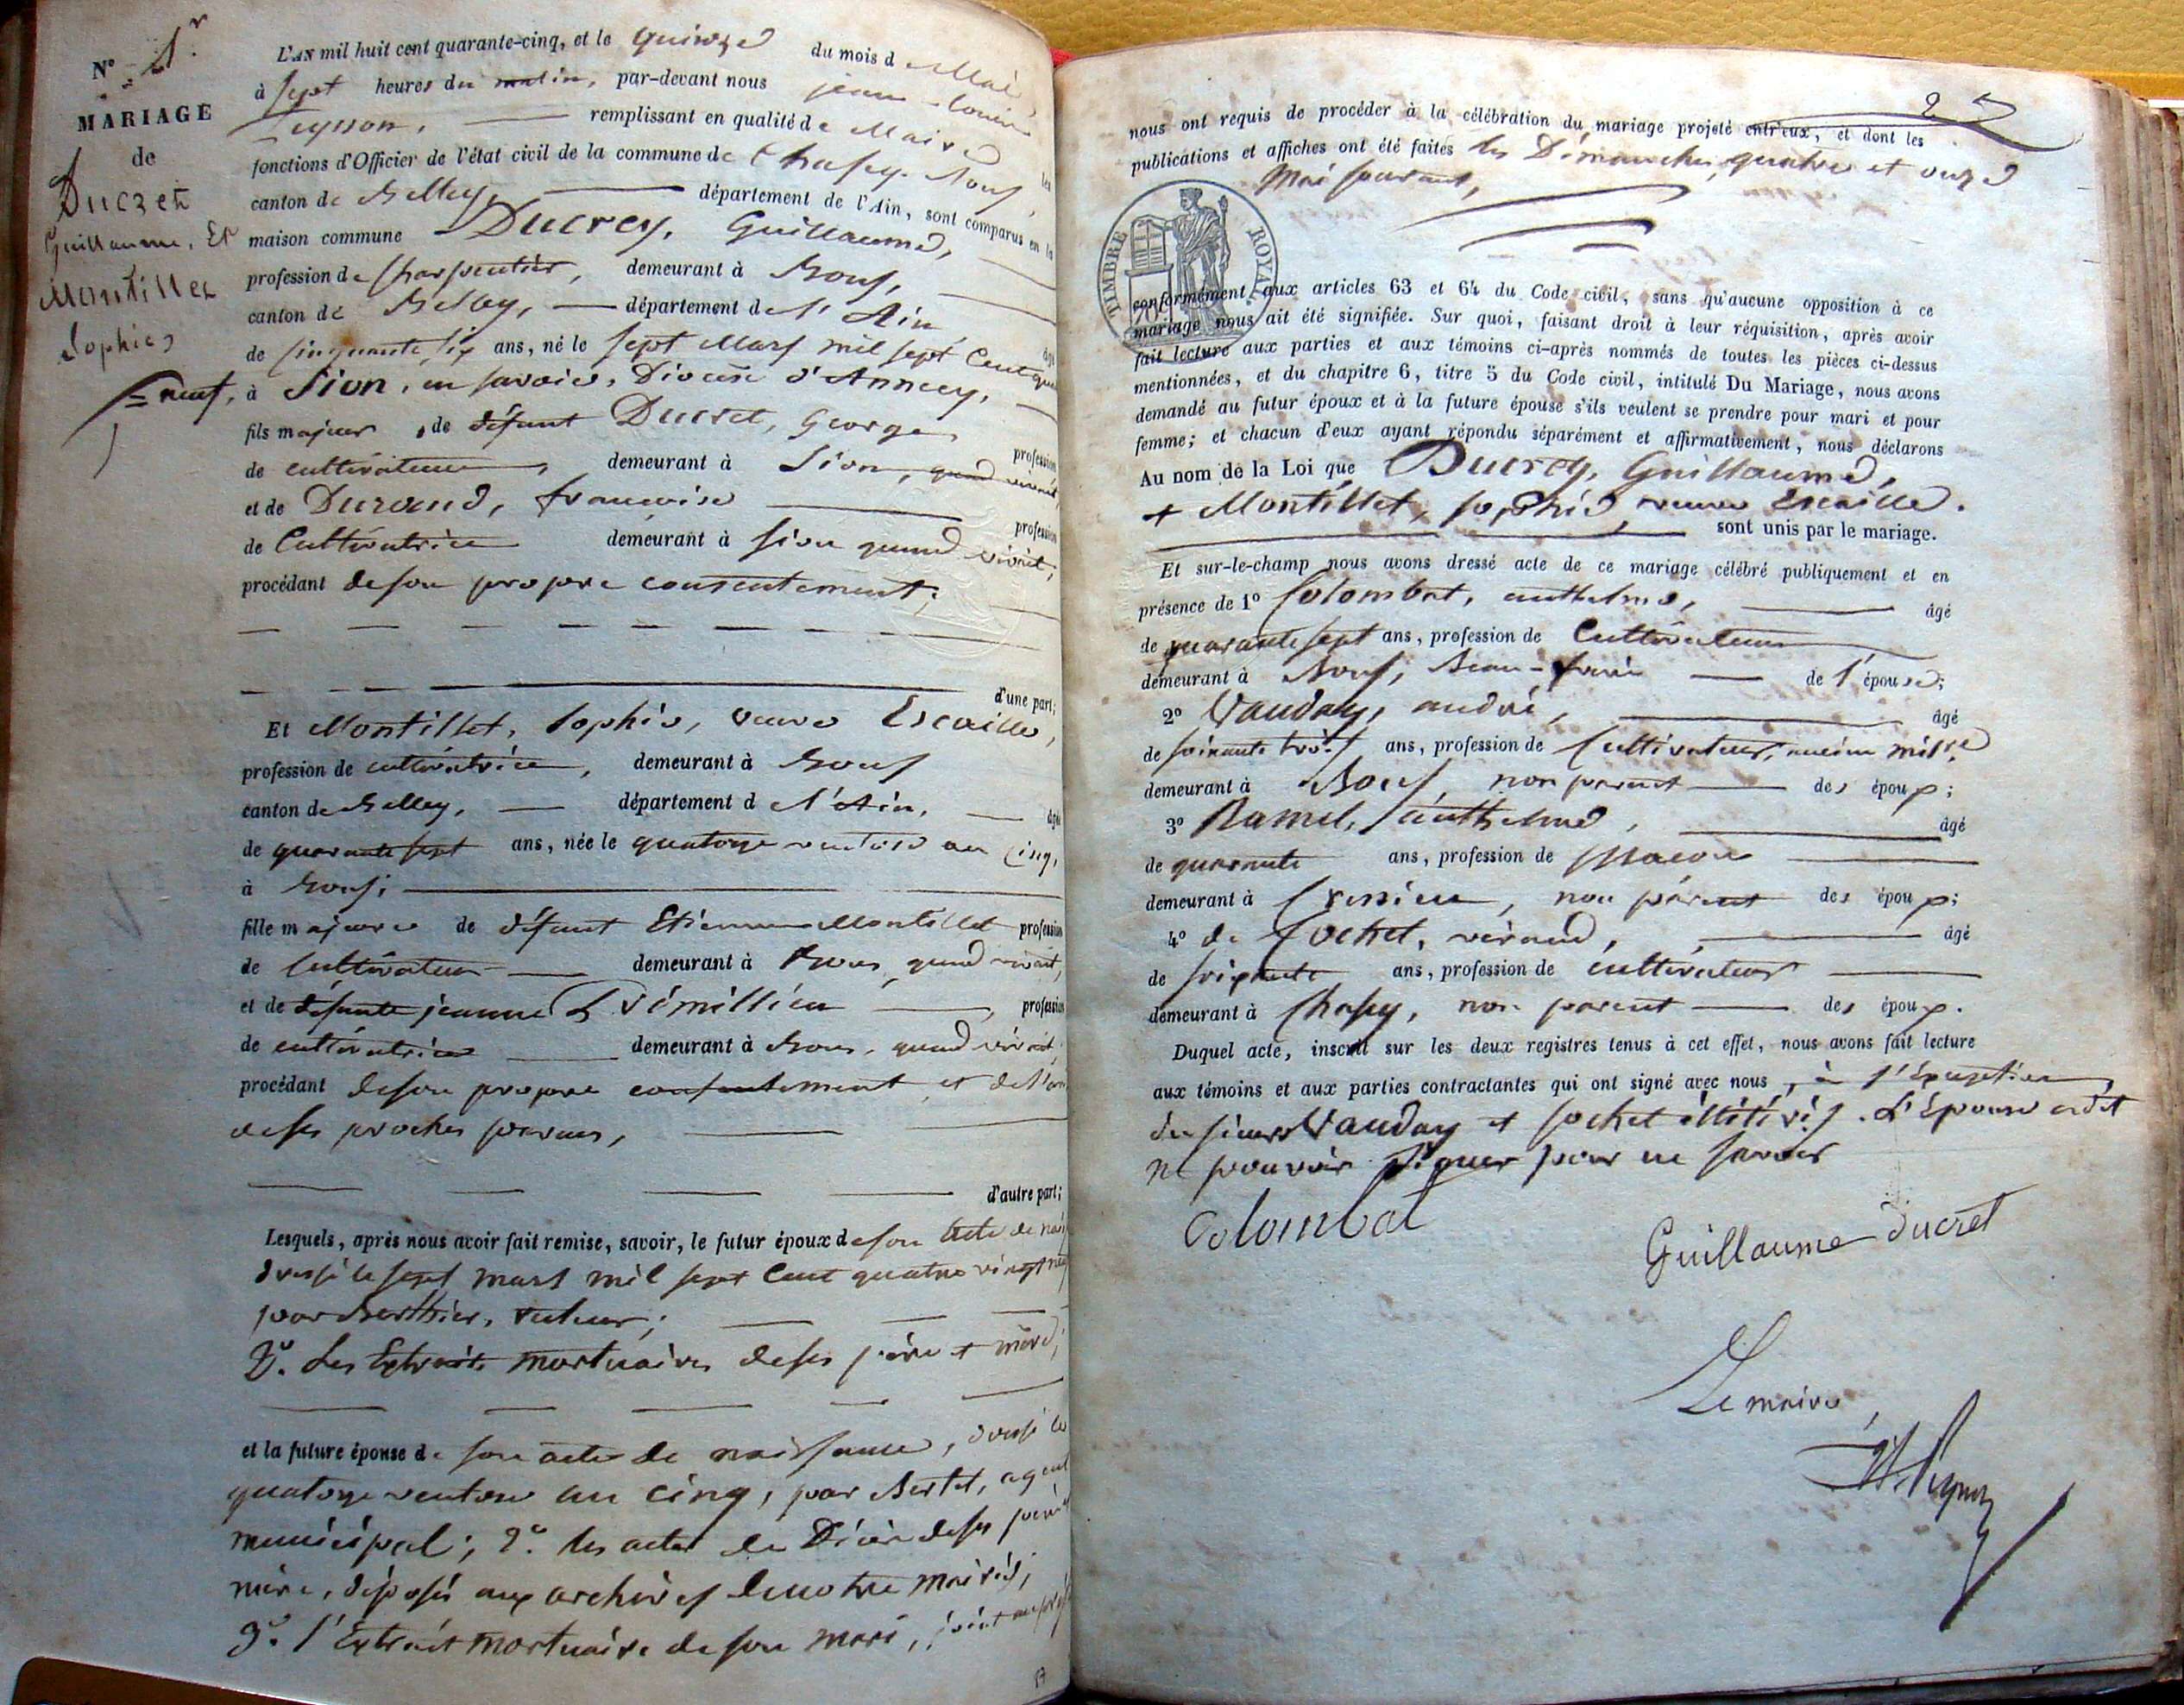 N° 1.r
MARIAGE
de
Ducret
Guillaume, Et
Montillet
Sophie
L'AN mil huit cent quarante-cinq, et le quinze du mois d Mai
à sept heures du matin, par-devant nous jean-louis
Peysson, remplissant en qualité de Maire les
fonctions d'Officier de l'état civil de la commune de Chazey-Bons,
canton de Belley, département de l'Ain, sont comparus en la
maison commune Ducrey, Guillaume,
profession de Charpentier, demeurant à Bons,
canton de Belley, département de l'Ain âgé
de cinquante six ans, né le sept Mars mil sept Cent quatre
= neuf, à Sion, en savoie, Diocèse d'Annecy,
fils majeur de défunt Ducret, George profession
de cultivateur, demeurant à Sion, quand vivait,
et de Durand, francoise profession
de Cultivatrice demeurant à sion quand vivait,
procédant de son propre consentement;
d'une part;
Et Montillet, Sophie, veuve Escaille,
profession de cultivatrice, demeurant à Bons
canton de Belley, département d l'Ain, âgée
de quarante sept ans, née le quatorze ventose an cinq,
à Bons;
fille majeure de défunt Etienne Montillet profession
de Cultivateur demeurant à Bons, quand vivait,
et de défunte jeanne Trémillieu, profession
de cultivatrice demeurant à Bons, quand vivait;
procédant de son propre consentement et de l'avis
de ses proches parens,
d'autre part;
Lesquels, après nous avoir fait remise, savoir, le futur époux de son Acte de nais
dressé le sept mars mil sept Cent quatre vingt neuf
par Berthier, recteur;
2°. Les Extraits mortuaires de ses père et mère;
et la future épouse de son acte de naissance, dressé le
quatorze ventose an cinq, par Bertet, agent
municipal; 2°. les actes de Décès de ses père et
mère, déposés aux archives de notre mairie;
3°. l'Extrait mortuaire de son mari, joint au présent
2
nous ont requis de procéder à la célébration du mariage projeté entr'eux, et dont les
publications et affiches ont été faites les Dimanches, quatre et onze
Mai courant,
TIMBRE ROYAL
conformément aux articles 63 et 64 du Code civil, sans qu'aucune opposition à ce
mariage nous ait été signifiée. Sur quoi, faisant droit à leur réquisition, après avoir
fait lecture aux parties et aux témoins ci-après nommés de toutes les pièces ci-dessus
mentionnées, et du chapitre 6, titre 5 du Code civil, intitulé Du Mariage, nous avons
demandé au futur époux et à la future épouse s'ils veulent se prendre pour mari et pour
femme; et chacun d'eux ayant répondu séparément et affirmativement, nous déclarons
Au nom de la Loi que Ducrey, Guillaume,
et Montillet, sophie, veuve Escaille.
sont unis par le mariage.
Et sur-le-champ nous avons dressé acte de ce mariage célébré publiquement et en
présence de 1° Colombat, anthelme, âgé
de quarante sept ans, profession de Cultivateur
demeurant à Bons, Beau-frère de l'épouse;
2° Vauday, andré, âgé
de soixante trois ans, profession de Cultivateur, ancien milre
demeurant à Bons, non parent des époux;
3° Ramel, anthelme, âgé
de quarante ans, profession de Maçon
demeurant à Cressieu, non parent des époux;
4° de Cochet, âgé
de soixante ans, profession de cultivateur
demeurant à Chazey, non parent des époux.
Duquel acte, inscrit sur les deux registres tenus à cet effet, nous avons fait lecture
aux témoins et aux parties contractantes qui ont signé avec nous, à l'éxception
des sieurs Vauday et Cochet illitérés. L'épouse a dit
ne pouvoir signer pour ne savoir
Colombat
Guillaume Ducret
Le maire,